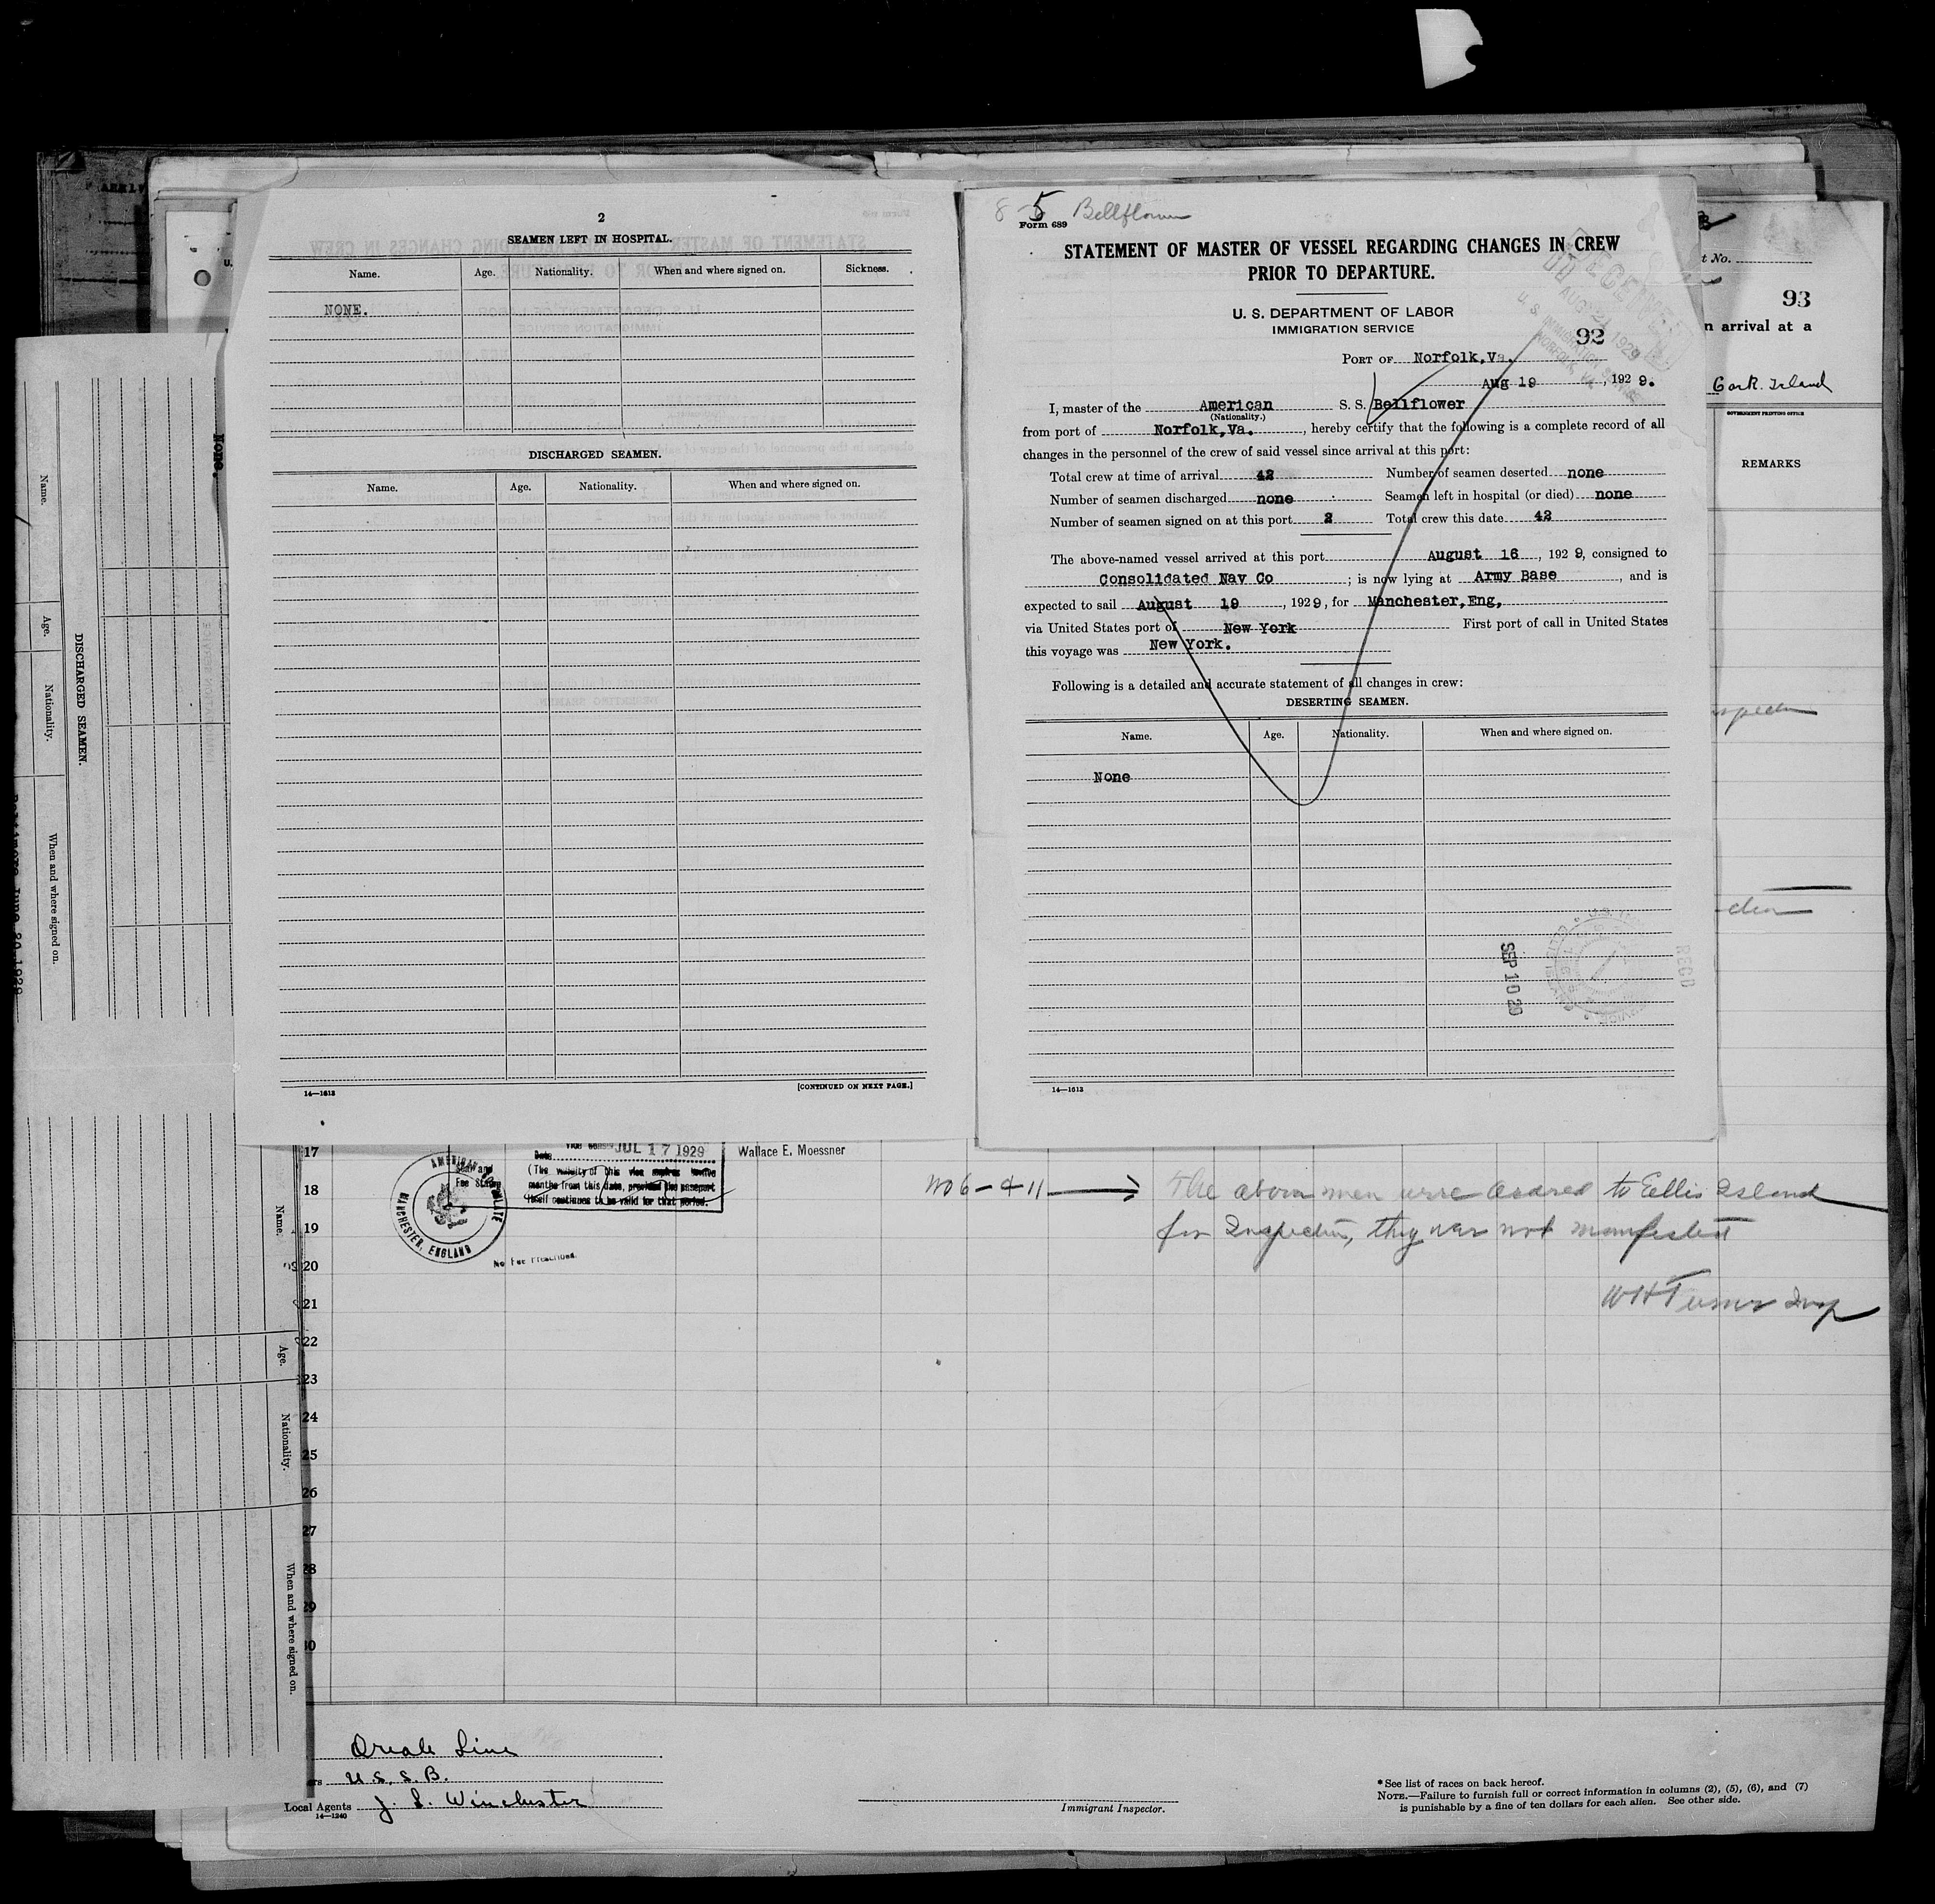 2
SEAMEN LEFT IN HOSPITAL.
Name. Age. Nationality. When and where signed on. Sickness.
NONE.
DISCHARGED SEAMEN.
Name. Age. Nationality. When and where signed on.
[CONTINUED ON NEXT PAGE.]
14—1613
8-5 Bellflower
Form 689
STATEMENT OF MASTER OF VESSEL REGARDING CHANGES IN CREW
PRIOR TO DEPARTURE.
U. S. DEPARTMENT OF LABOR
IMMIGRATION SERVICE
92
RECEIVED
AUG 21 1929
U. S. IMMIGRATION SERVICE
NORFOLK, VA.
PORT OF Norfolk,Va.
Aug 19, 1929.
I, master of the American S. S. Bellflower
(Nationality.)
from port of Norfolk,Va., hereby certify that the following is a complete record of all
changes in the personnel of the crew of said vessel since arrival at this port:
Total crew at time of arrival 42 Number of seamen deserted none
Number of seamen discharged none Seamen left in hospital (or died) none
Number of seamen signed on at this port 2 Total crew this date 42
The above-named vessel arrived at this port August 16, 1929, consigned to
Consolidated Nav Co; is now lying at Army Base, and is
expected to sail August 19, 1929, for Manchester,Eng,
via United States port of New York First port of call in United States
this voyage was New York.
Following is a detailed and accurate statement of all changes in crew:
DESERTING SEAMEN.
Name. Age. Nationality. When and where signed on.
None
SEP 10 29
RECD
14—1613
t No.
93
n arrival at a
Cork. Island
GOVERNMENT PRINTING OFFICE
REMARKS
None.
Name. Age. Nationality. When and where signed on.
DISCHARGED SEAMEN.
Name. Age. Nationality. When and where signed on.
17
18
19
20
21
22
23
24
25
26
27
28
29
30
JUL 17 1929
Date
(The validity of this visa expires twelve
months from this date, provided the passport
itself continues to be valid for that period.
Wallace E. Moessner
AMERICAN CONSULATE
MANCHESTER, ENGLAND
No Fee Prescribed.
No 6-4-11 The above men were ordered to Ellis Island
for Inspection, they was not manifested
WH Turner Insp
Oriole Line
U.S.S.B.
Local Agents J. S. Winchester
14—1240
Immigrant Inspector.
* See list of races on back hereof.
NOTE.—Failure to furnish full or correct information in columns (2), (5), (6), and (7)
is punishable by a fine of ten dollars for each alien. See other side.